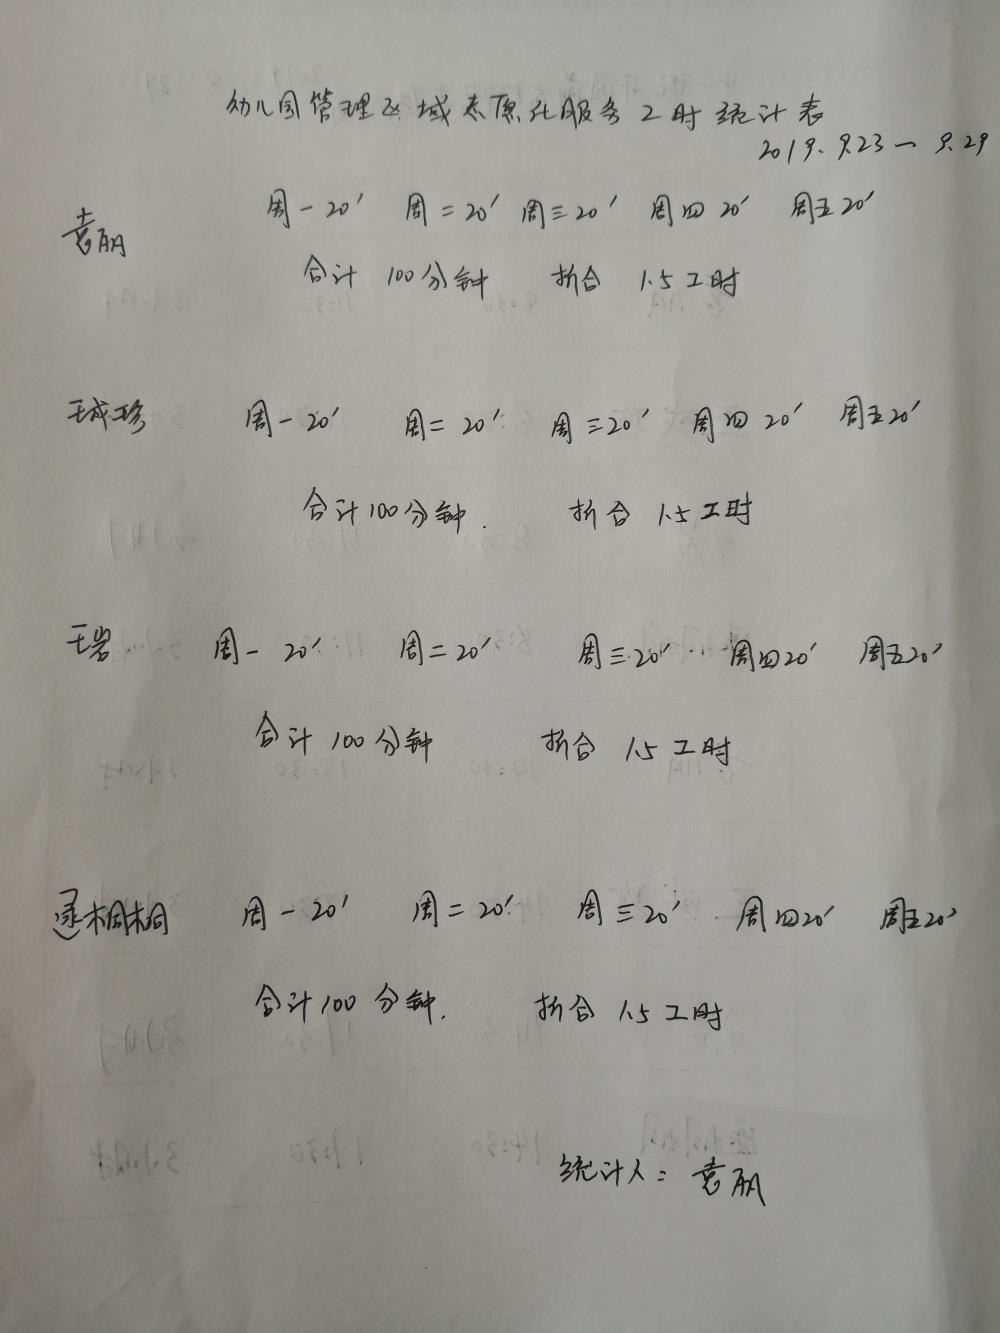 幼儿园管理区域志愿化服务工时统计表
2019.9.23一9.29
袁丽 周一20′ 周二20′ 周三20′ 周四20′ 周五20′
合计100分钟 折合1.5工时
王成珍 周一20′ 周二20′ 周三20′ 周四20′ 周五20′
合计100分钟. 折合1.5工时
王岩 周一20′ 周二20′ 周三20′ 周四20′ 周五20′
合计100分钟 折合1.5工时
逯桐桐 周一20′ 周二20′ 周三20′ 周四20′ 周五20′
合计100分钟. 折合1.5工时
统计人: 袁丽